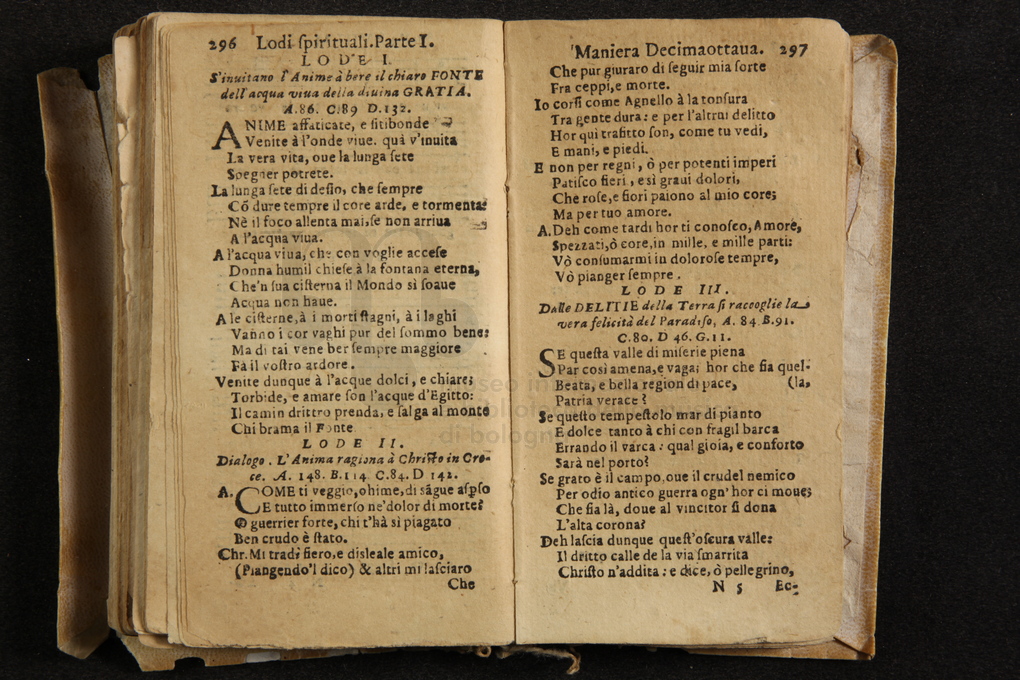 296 Lodi ſpirituali.Parte I.
LODE I.
S'inuitano l'Anime à bere il chiaro FONTE
dell'acqua viua della diuina GRATIA.
A.86. C.89 D.132.
ANIME affaticate, e ſitibonde
Venite à l'onde viue. quà v'inuita
La vera vita, oue la lunga ſete
Spegner potrete.
La lunga ſete di deſio, che ſempre
Cõ dure tempre il core arde, e tormenta:
Nè il foco allenta mai,ſe non arriua
A l'acqua viua.
A l'acqua viua, che con voglie acceſe
Donna humil chieſe à la fontana eterna,
Che'n ſua ciſterna il Mondo sì ſoaue
Acqua non haue.
A le ciſterne,à i morti ſtagni, à i laghi
Vanno i cor vaghi pur del ſommo bene:
Ma di tai vene ber ſempre maggiore
Fà il voſtro ardore.
Venite dunque à l'acque dolci, e chiare;
Torbide, e amare ſon l'acque d'Egitto:
Il camin drittro prenda, e ſalga al monte
Chi brama il Fonte
LODE II.
Dialogo. L'Anima ragiona à Chriſto in Cro-
ce. A. 148. B.114. C.84. D 142.
A. COME ti veggio,ohime,di sãgue aſpſo
E tutto immerſo ne'dolor di morte?
O guerrier forte, chi t'hà sì piagato
Ben crudo è ſtato.
Chr. Mi tradì fiero,e disleale amico,
(Piangendo'l dico) & altri mi laſciaro
Che
Maniera Decimaottaua. 297
Che pur giuraro di ſeguir mia ſorte
Fra ceppi,e morte.
Io corſi come Agnello à la tonſura
Tra gente dura: e per l'altrui delitto
Hor qui trafitto ſon, come tu vedi,
E mani, e piedi.
E non per regni, ò per potenti imperi
Patiſco fieri, e sì graui dolori,
Che roſe,e fiori paiono al mio core;
Ma per tuo amore.
A. Deh come tardi hor ti conoſco, Amore,
Spezzati,ò core,in mille, e mille parti:
Vò conſumarmi in doloroſe tempre,
Vò pianger ſempre.
LODE III.
Dalle DELITIE della Terra ſi raccoglie la
vera felicità del Paradiſo, A. 84. B.91.
C.80. D 46. G.11.
SE queſta valle di miſerie piena
Par così amena,e vaga; hor che fia quel-
Beata, e bella region di pace, (la,
Patria verace?
Se queſto tempeſtoſo mar di pianto
E dolce tanto à chi con fragil barca
Errando il varca: qual gioia, e conforto
Sarà nel porto?
Se grato è il campo,oue il crudel nemico
Per odio antico guerra ogn' hor ci moue;
Che fia là, doue al vincitor ſi dona
L'alta corona?
Deh laſcia dunque queſt'oſcura valle:
Il dritto calle de la via ſmarrita
Chriſto n'addita: e dice, ò pellegrino,
N 5 Ec-